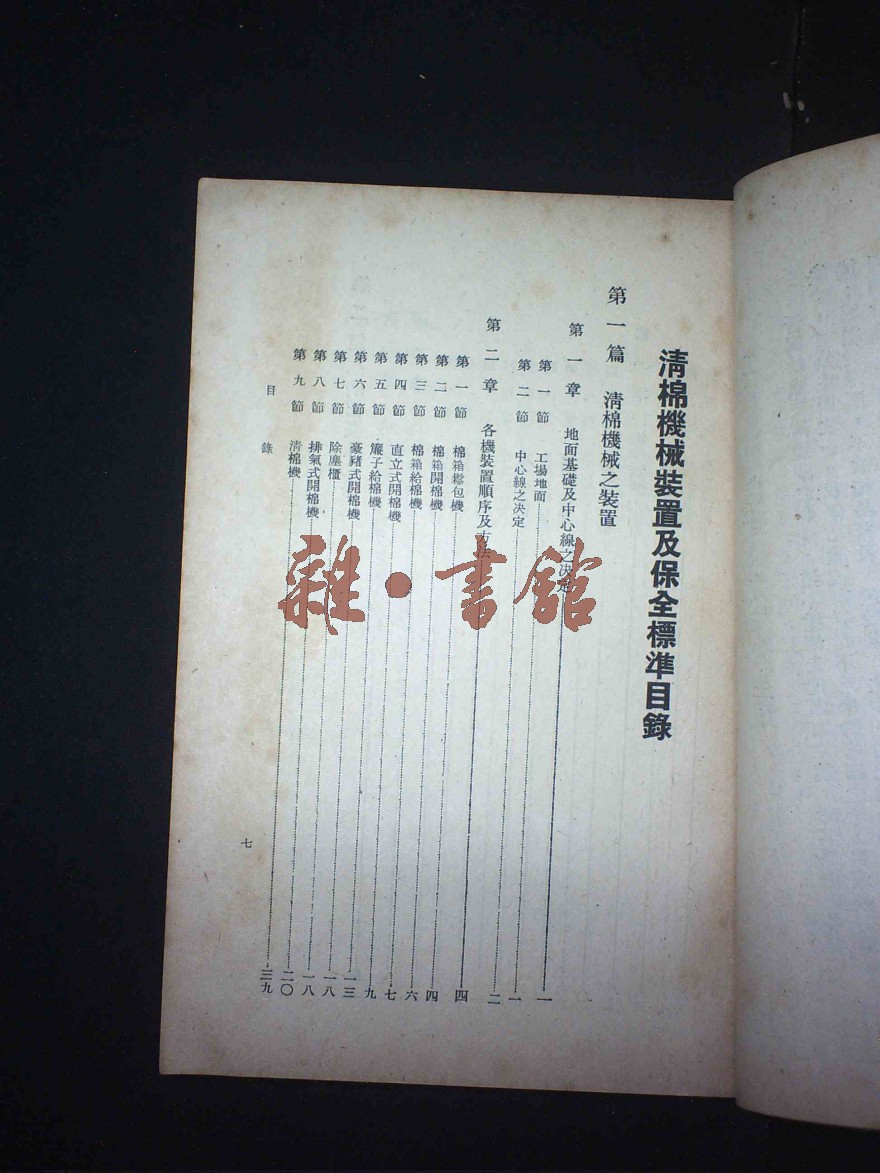 清棉機械裝置及保全標準目錄
第一篇 清棉機械之裝置 一
第一章 地面基礎及中心線之決定 一
第一節 工場地面 一
第二節 中心線之決定 二
第二章 各機裝置順序及方法 四
第一節 棉箱鬆包機 四
第二節 棉箱開棉機 六
第三節 棉箱給棉機 七
第四節 直立式開棉機 九
第五節 簾子給棉機 一三
第六節 豪豬式開棉機 一八
第七節 除塵櫃 一八
第八節 排氣式開棉機 二〇
第九節 清棉機 三九
目錄 七
雜·書館